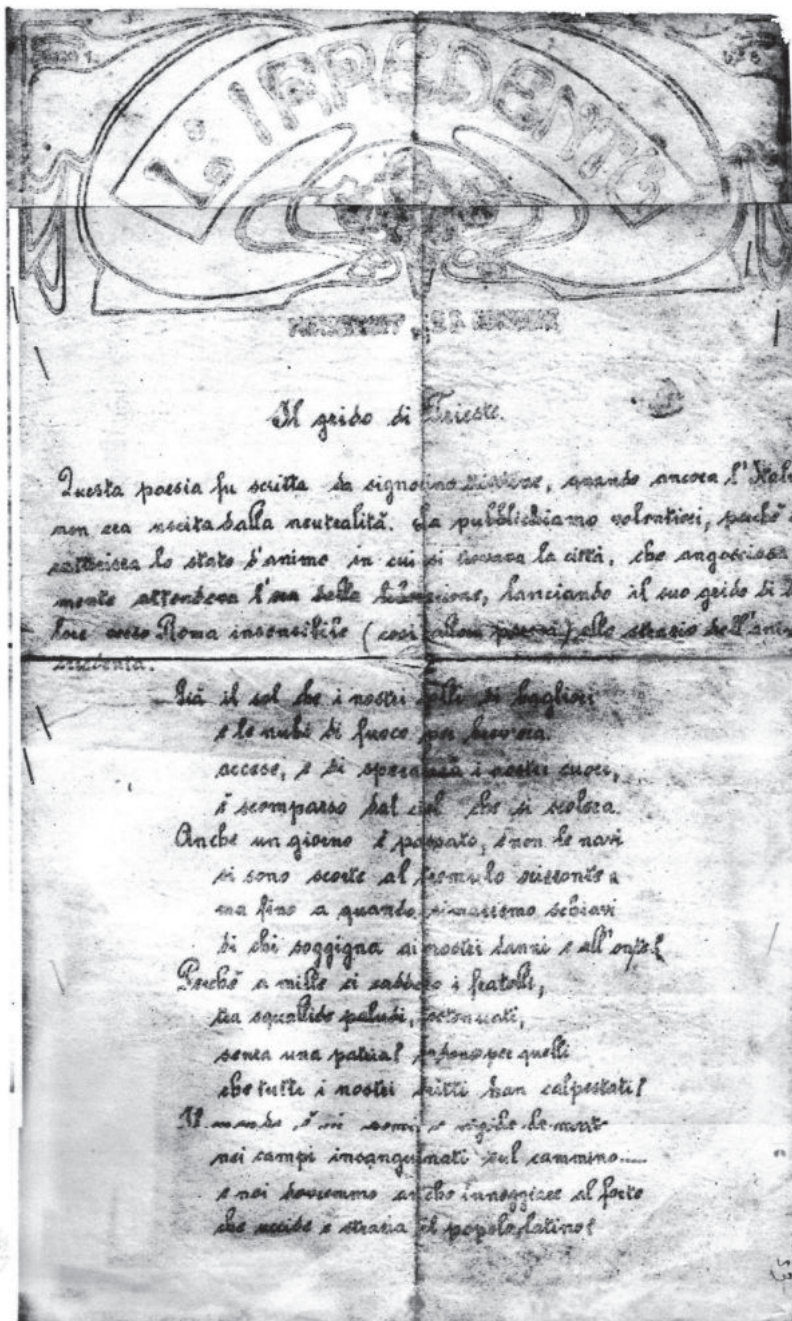 L'IRREDENTO
Il grido di Trieste.
Questa poesia fu scritta da signorino, quando ancora l'Ital
non era uscita dalla neutralità. La pubblichiamo volentieri, perchè
lo stato d'animo in cui si trovava la città, che angosciosa
mente attendeva l'ora della liberazione, lanciando il suo grido di
lore verso Roma insensibile (così allora) allo strazio dell'anim
irredenta.
Già il sol che i nostri colli di bagliori
e le nubi di fuoco
accese, e di speranza i nostri cuori,
è scomparso dal ciel che si scolora.
Anche un giorno è passato, e non le navi
si sono scorte al tremulo orizzonte
ma fino a quando rimarremo schiavi
di chi sogghigna ai nostri danni e all'onte?
Perchè a mille ci i fratelli,
tra squallide paludi,
senza una patria? per quelli
che tutti i nostri dritti han calpestati?
nei campi insanguinati sul cammino.....
e noi dovremmo anche inneggiare al forte
che uccide e strazia il popolo latino?